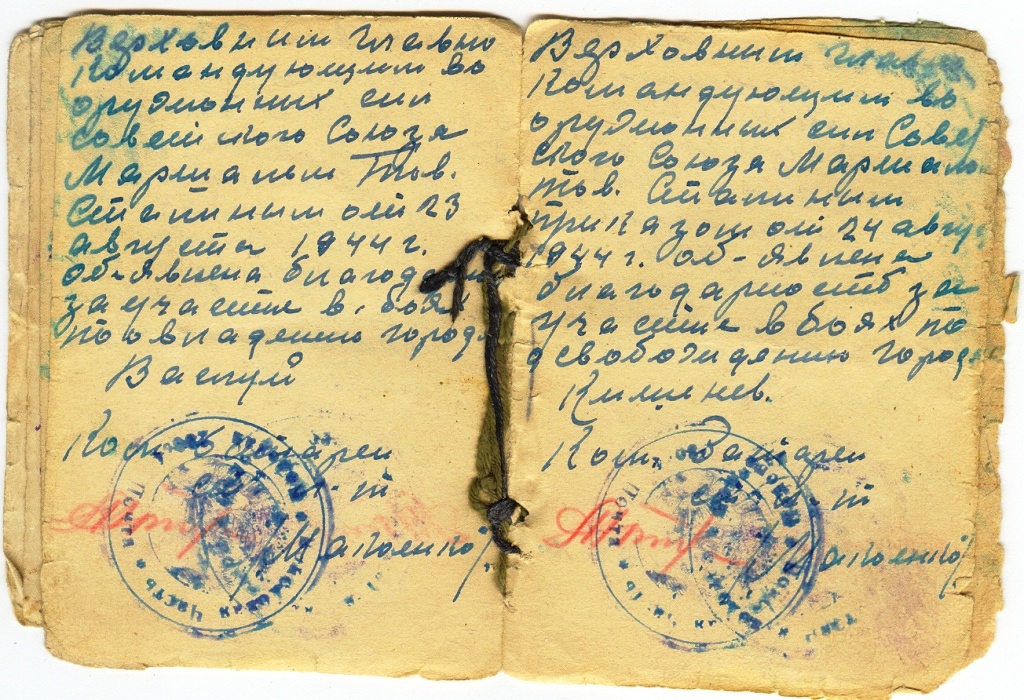 Верховным главно
командующим во
оружонных сил
советского Союза
Маршалым Тов.
Сталиным от 23
августа 1944 г.
об-явлена благодар
за участие в боях
по овладению города
Васлуй
Ком. батареи
ст. л-т
/Маколенко/
Верховным главно
Командующим во
оружонных сил Совет
ского Союза Маршалом
тов. Сталиным
приказом от 24 авгу
1944 г. об-явлена
благодарность за
участие в боях по
освобождению города
Кишинев.
Ком. батареи
ст. л-т